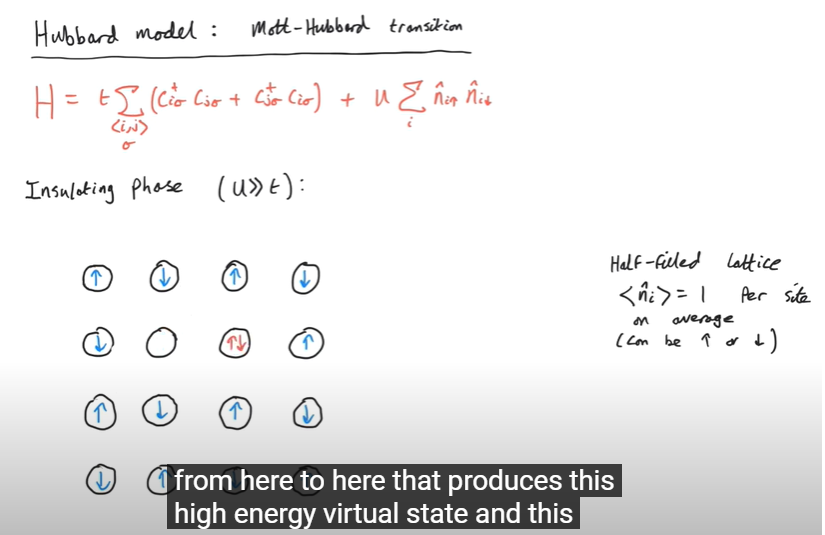 Hubbard model : Mott-Hubbard transition
H = t Σ (c†iσ cjσ + c†jσ ciσ) + u Σ n̂i↑ n̂i↓
<i,j> i
σ
Insulating phase (U≫t):
Half-filled lattice
<n̂i> = 1 per site
on average
(can be ↑ or ↓)
↑ ↓ ↑ ↓
↓ ↑↓ ↑
↑ ↓ ↑ ↓
↓ ↑
from here to here that produces this
high energy virtual state and this